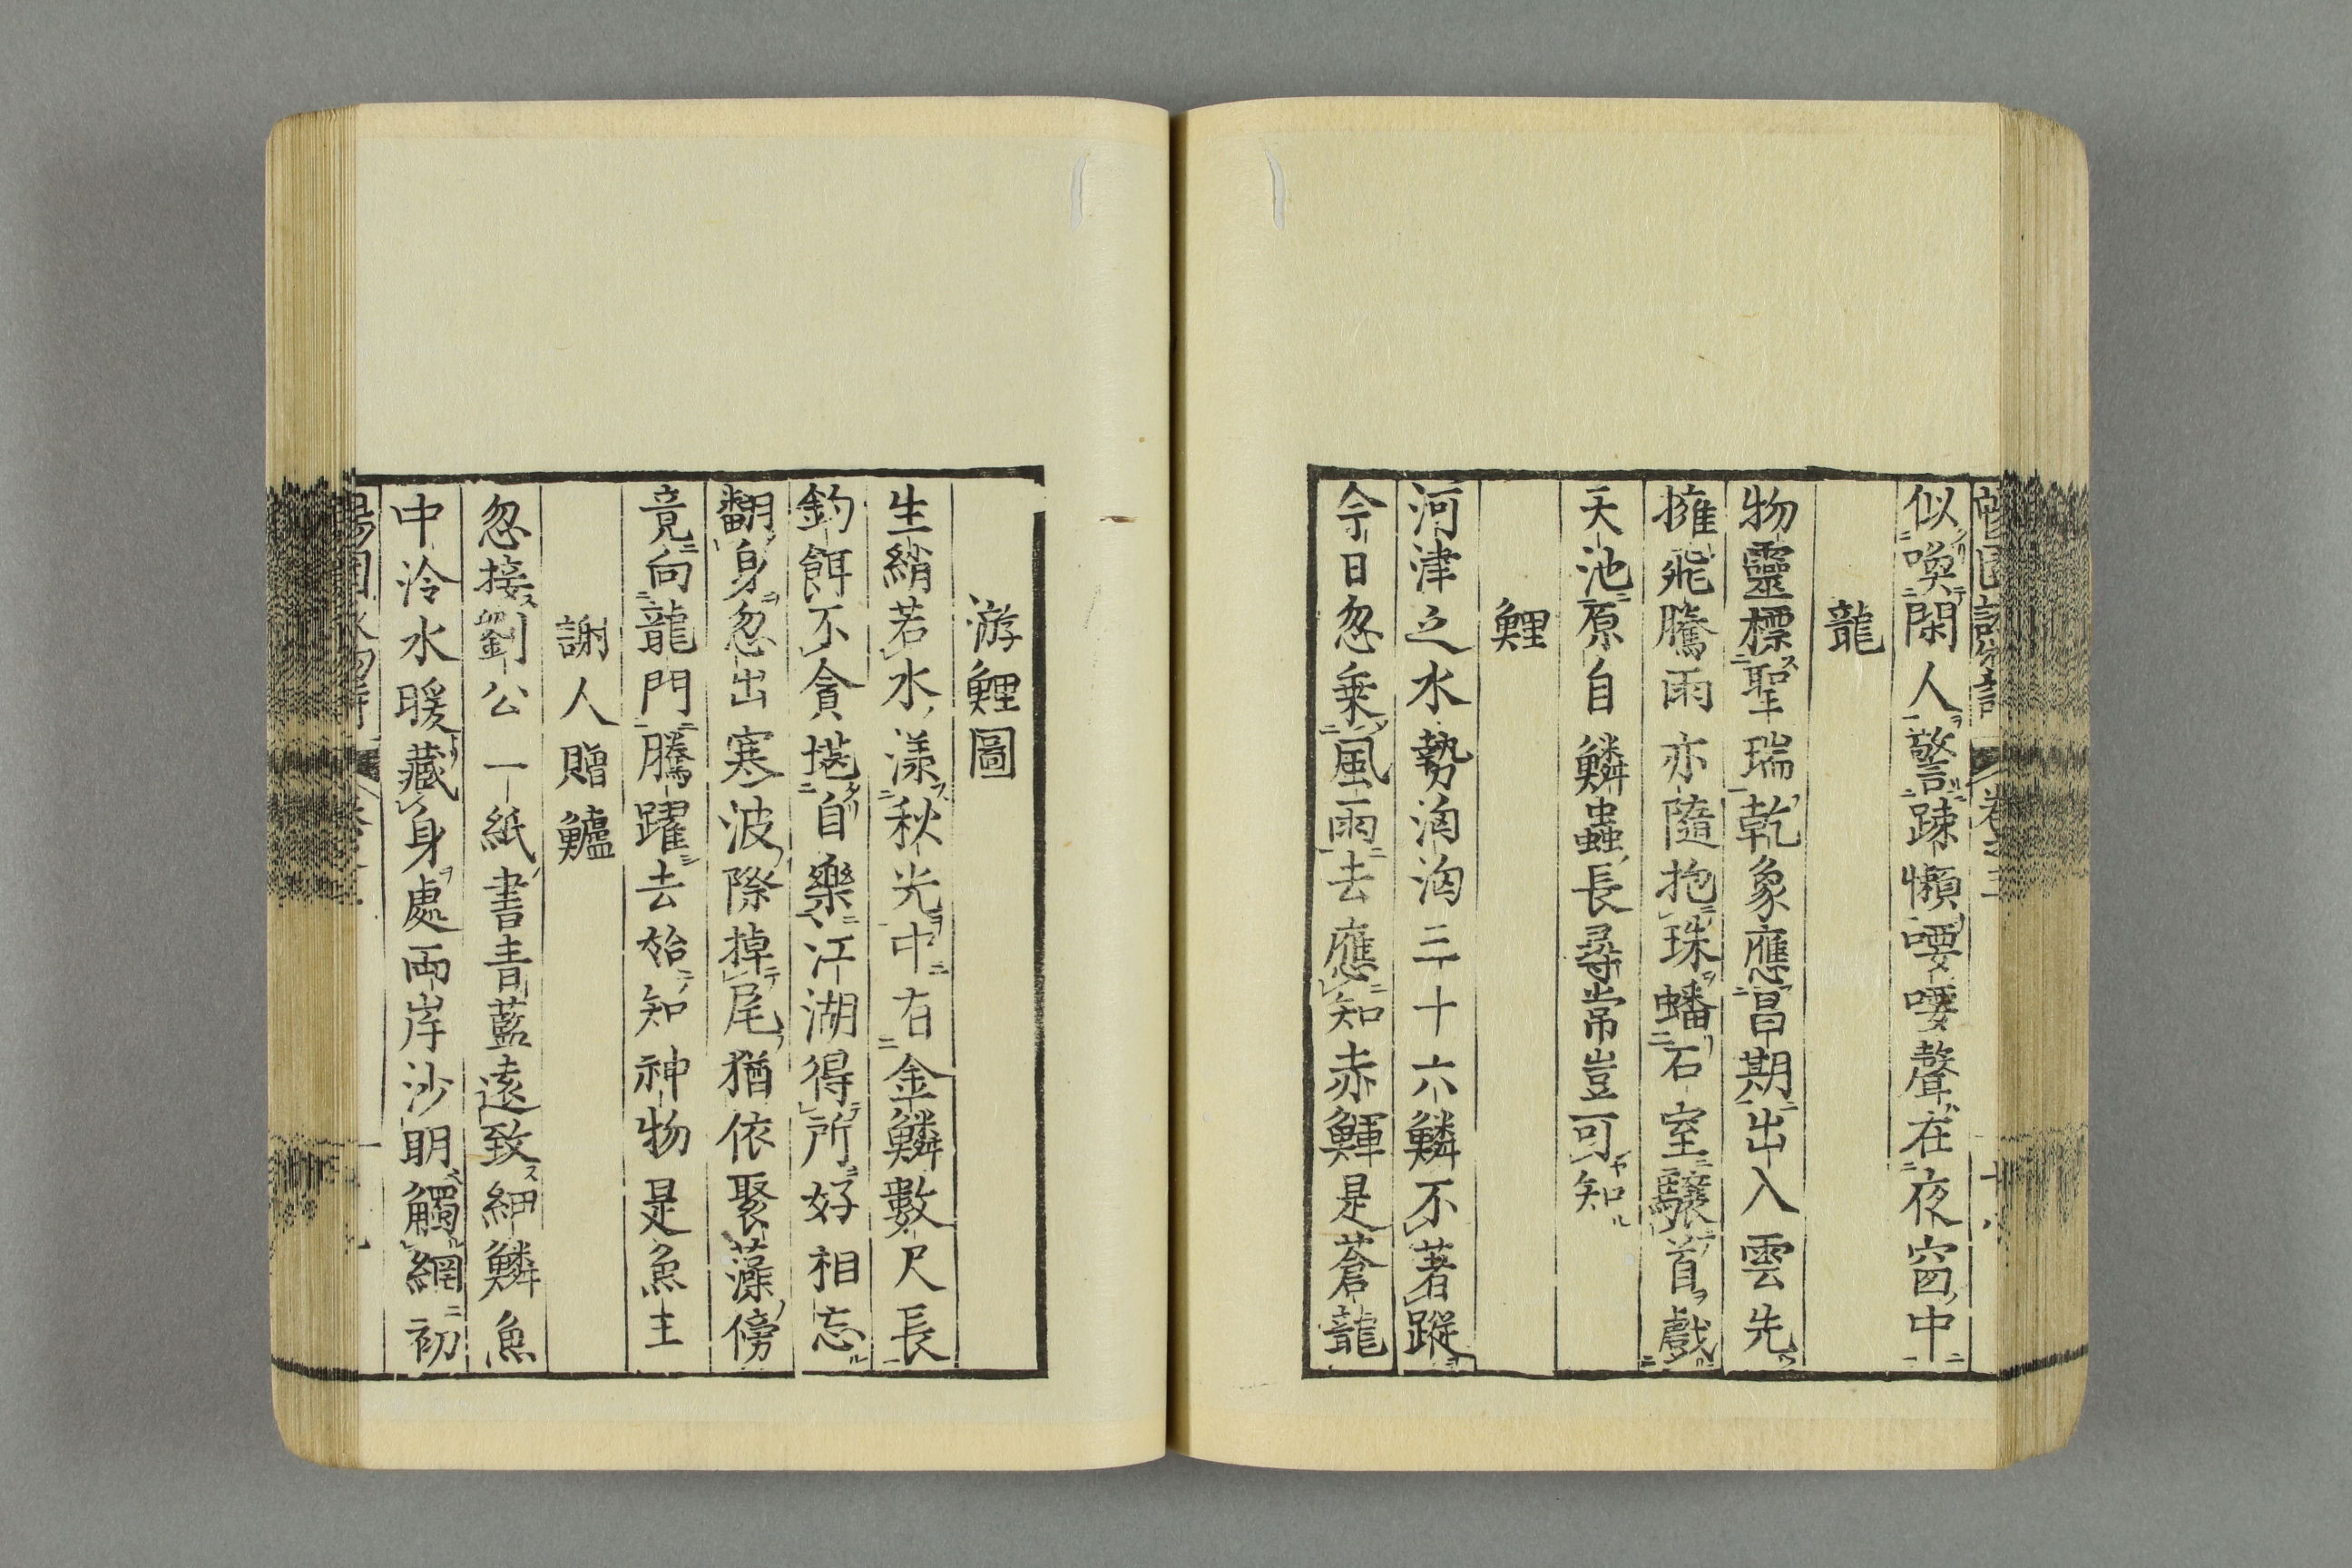 似喚閑人警疎懶喓喓聲在夜窗中
龍
物靈標聖瑞乾象應昌期出入雲先
擁飛騰雨亦隨抱珠蟠石室驤首戲
天池原自鱗蟲長尋常豈可知
鯉
河津之水勢洶洶三十六鱗不著蹤
今日忽乗風雨去應知赤鯶是蒼龍
游鯉圖
生綃若水漾秋光中有金鱗數尺長
釣餌不貪堪自樂江湖得所好相忘
翻身忽出寒波際掉尾猶依聚藻傍
竟向龍門騰躍去始知神物是魚主
謝人贈鱸
忽接劉公一紙書青藍遠致細鱗魚
中泠水暖藏身處両岸沙明觸網初